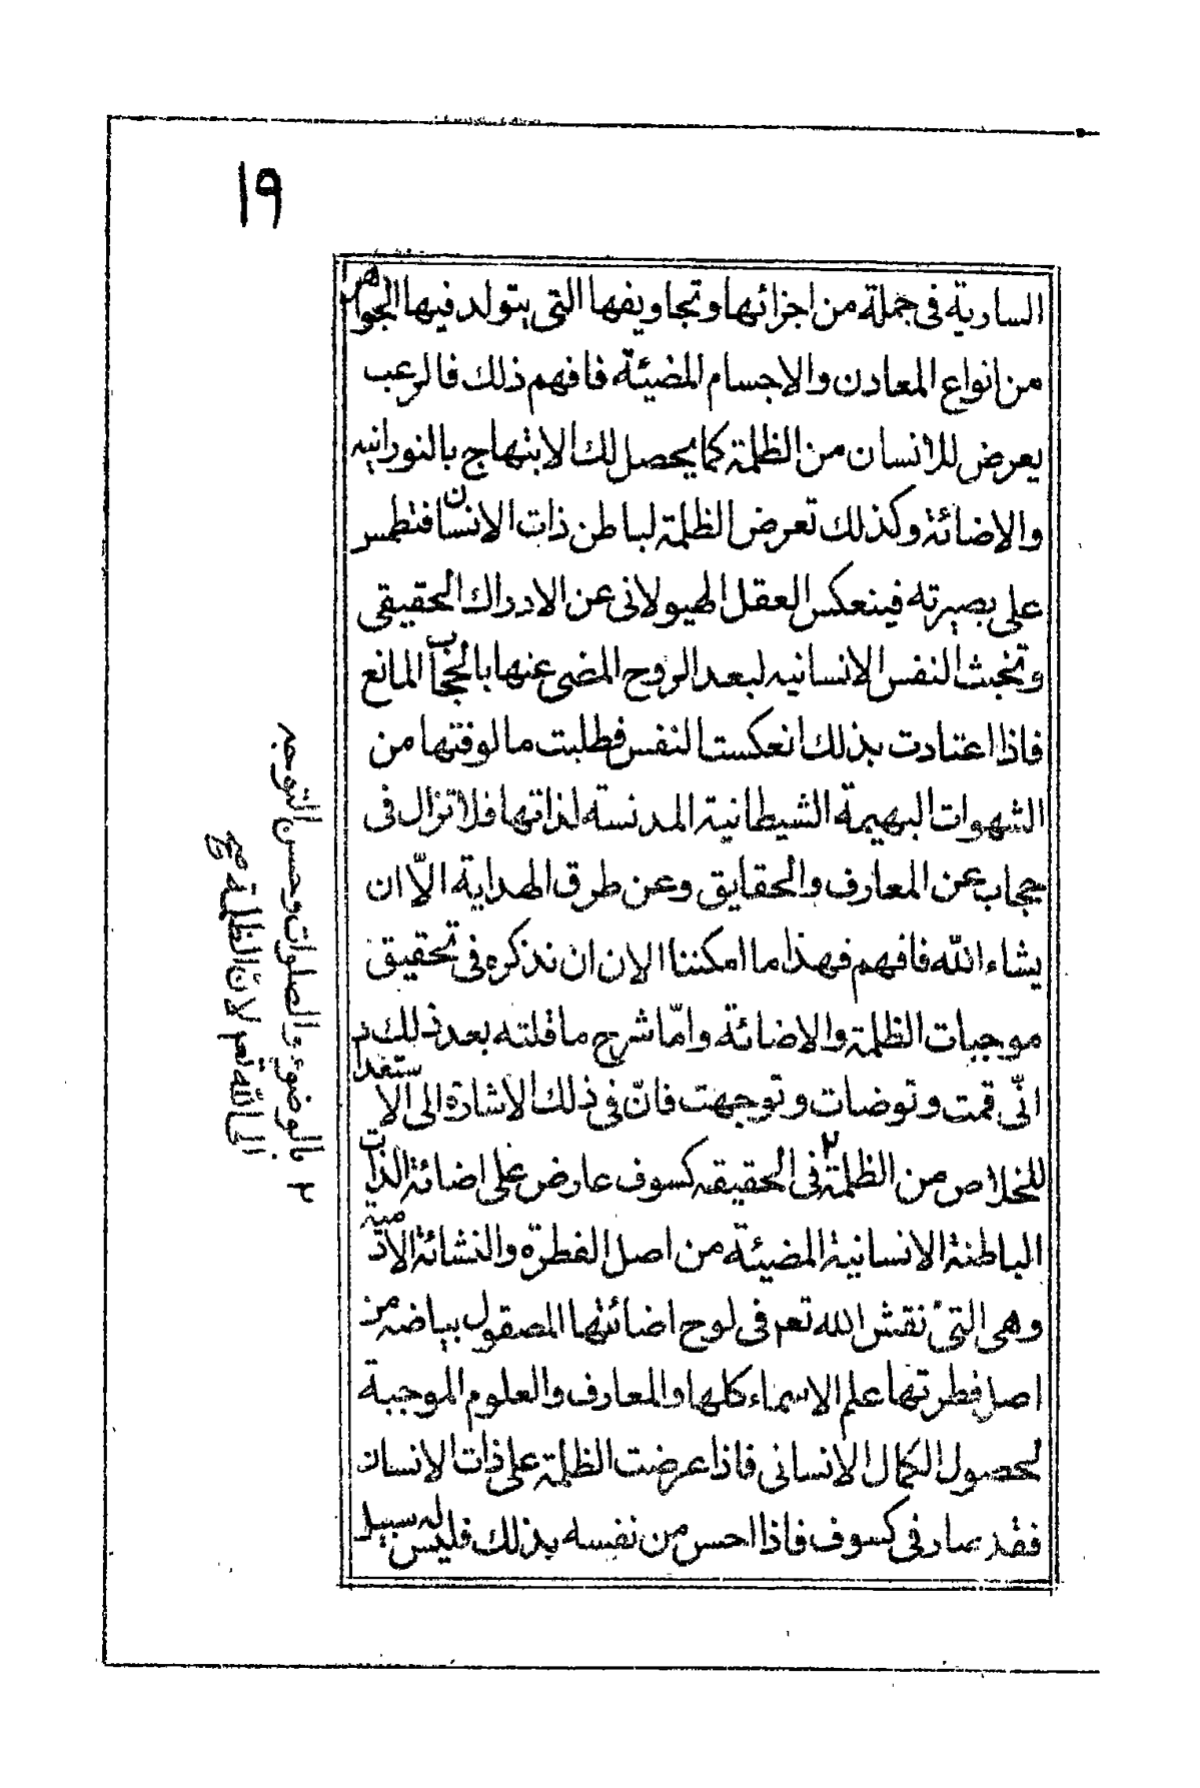 ١٩
السارية فى جملة من اجزائها وتجاويفها التى يتولد فيها الجواهر
من انواع المعادن والاجسام المضيئة فافهم ذلك فالرعب
يعرض للانسان من الظلمة كما يحصل لك الابتهاج بالنورانيه
والاضائة وكذلك تعرض الظلمة لباطن ذات الانسان فتطمس
على بصيرته فينعكس العقل الهيولانى عن الادراك الحقيقى
وتخبث النفس الانسانيه لبعد الروح المضى عنها بالحجاب المانع
فاذا اعتادت بذلك انعكست النفس فطلبت مالوفتها من
الشهوات البهيمة الشيطانية المدنسة لذاتها فلا تزال فى
حجاب عن المعارف والحقايق وعن طرق الهداية الّا ان
يشاء اللّه فافهم فهذا ما امكننا الان ان نذكره فى تحقيق
موجبات الظلمة والاضائة وامّا شرح ما قلته بعد ذلك
انّى قمت وتوضات وتوجهت فانّ فى ذلك الاشارة الى الاستعداد
للخلاص من الظلمة ٢ فى الحقيقه كسوف عارض على اضائة الذات
الباطنة الانسانية المضيئة من اصل الفطرة والنشائة الادمية
وهى التى نقش الله تعم فى لوح اضائتها المصقول ببياضه من
اصل فطرتها علم الاسماء كلها والمعارف والعلوم الموجبة
لحصول الكمال الانسانى فاذا عرضت الظلمة على ذات الانسان
فقد صار فى كسوف فاذا احس من نفسه بذلك فليس له سبيل
٢ بالوضوء والصلوات وحسن التوجه
الى اللّه تعم لانّ الظلمة صح